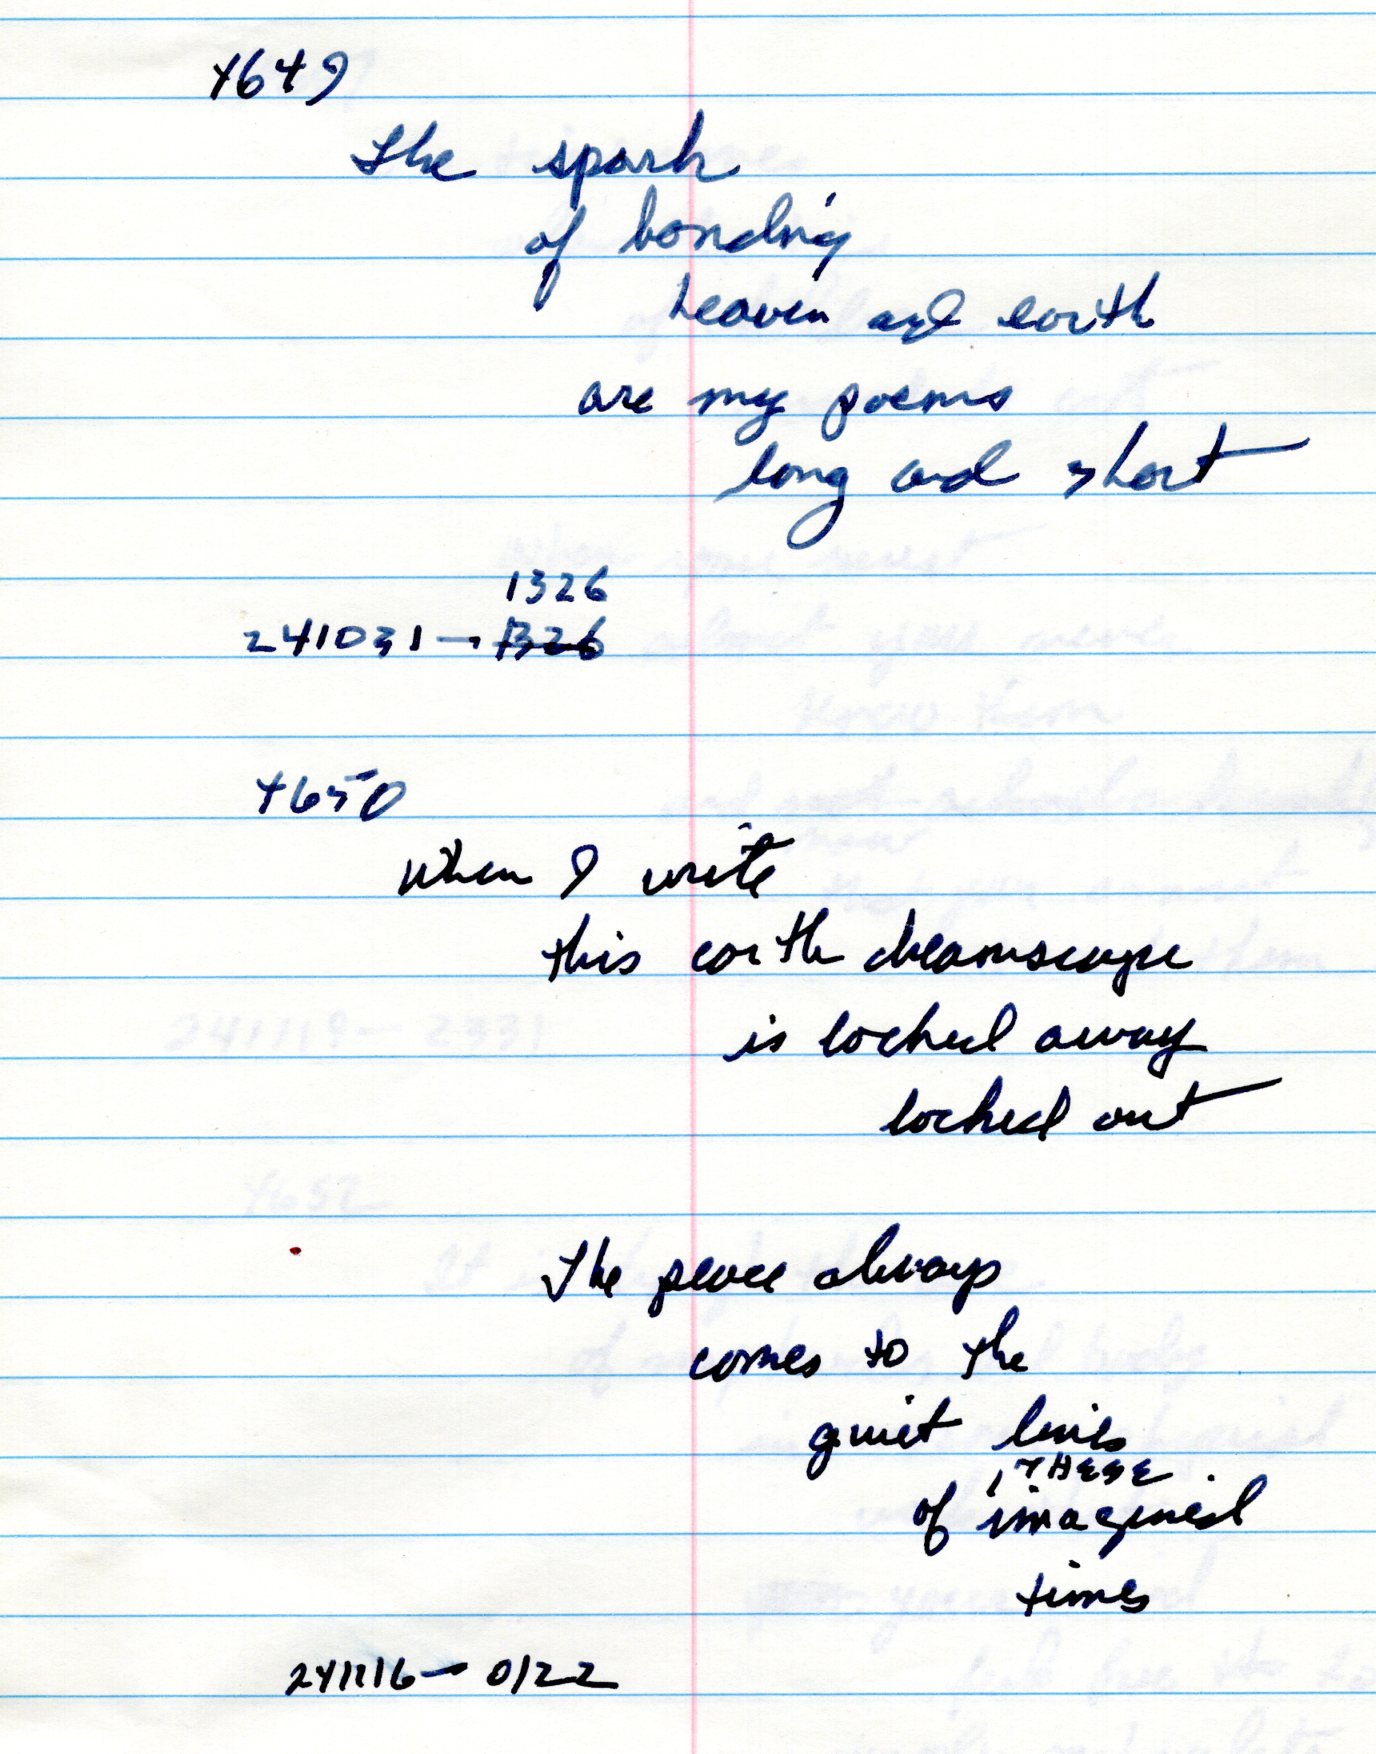 4649
The spark
of bonding
heaven and earth
are my poems
long and short
1326
241031 — 1326
4650
When I write
this earth dreamscape
is locked away
locked out
The peace always
comes to the
quiet lines
THESE
of imagined
times
241116 — 0122